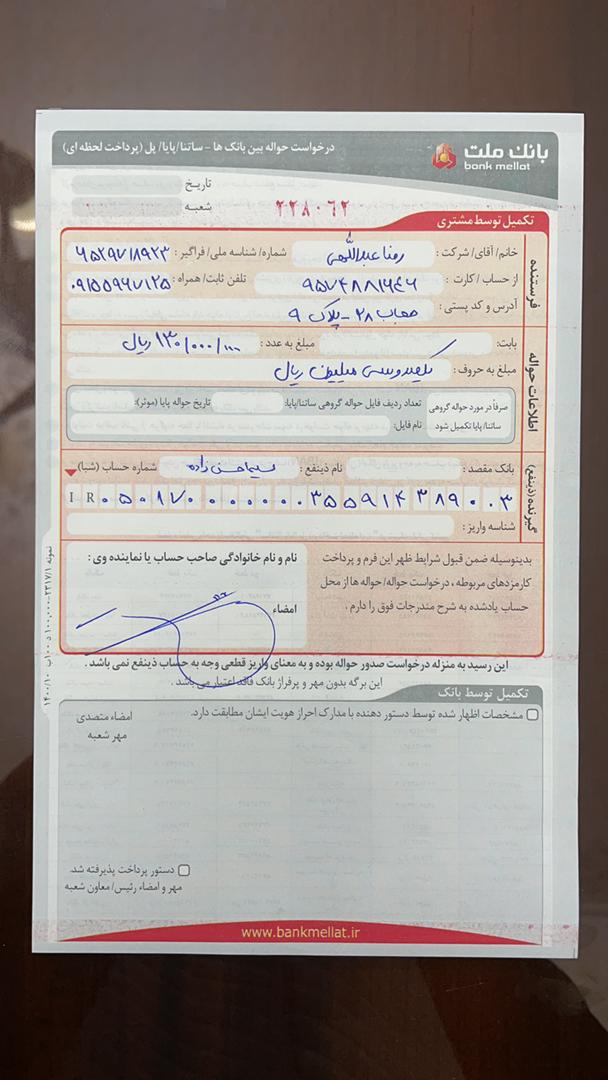 بانک ملت
bank mellat
درخواست حواله بین بانک ها - ساتنا/پایا/پل (پرداخت لحظه ای)
تاریخ
شعبه
۲۲۸۰۶۲
تکمیل توسط مشتری
فرستنده
خانم/آقای/شرکت: رضا عبداللهی شماره/شناسه ملی/فراگیر: ۶۵۲۹۷۱۸۹۲۳
از حساب/کارت: ۹۵۷۴۸۸۱۶۴۶ تلفن ثابت/همراه: ۰۹۱۵۵۹۶۷۱۲۵
آدرس و کد پستی: ۲۸ - پلاک ۹
اطلاعات حواله
بابت: مبلغ به عدد: ۱۳۰/۰۰۰/۰۰۰ ریال
مبلغ به حروف: یکصد و سی میلیون ریال
صرفاً در مورد حواله گروهی ساتنا/پایا تکمیل شود
تعداد ردیف فایل حواله گروهی ساتنا/پایا: تاریخ حواله پایا (موثر):
نام فایل:
گیرنده (ذینفع)
بانک مقصد: نام ذینفع: حسن زاده شماره حساب (شبا)
IR ۰۵۰۱۷۰۰۰۰۰۰۰۳۵۵۹۱۴۳۸۹۰۰۳
شناسه واریز:
بدینوسیله ضمن قبول شرایط ظهر این فرم و پرداخت
کارمزدهای مربوطه، درخواست حواله/حواله ها از محل
حساب یادشده به شرح مندرجات فوق را دارم.
نام و نام خانوادگی صاحب حساب یا نماینده وی:
امضاء
این رسید به منزله درخواست صدور حواله بوده و به معنای واریز قطعی وجه به حساب ذینفع نمی باشد.
این برگه بدون مهر و پرفراژ بانک فاقد اعتبار می باشد.
تکمیل توسط بانک
مشخصات اظهار شده توسط دستور دهنده با مدارک احراز هویت ایشان مطابقت دارد.
امضاء متصدی
مهر شعبه
دستور پرداخت پذیرفته شد.
مهر و امضاء رئیس/معاون شعبه
www.bankmellat.ir